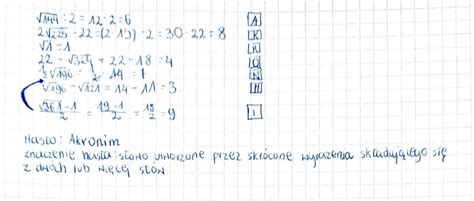 √144 : 2 = 12 : 2 = 6 A
2√225 - 22 = (2·15) - 2 = 30 - 22 = 8 K
√1 = 1 R
22 - √324 = 22 - 18 = 4 O
1/2 √196 = 1/2 · 14 = 7 N
√196 - √121 = 14 - 11 = 3 I
√361 - 1 / 2 = 19 - 1 / 2 = 18 / 2 = 9 I
Hasło: Akronim
znaczenie hasła: słowo utworzone przez skrócone wyrażenia składającego się
z dwóch lub więcej słów